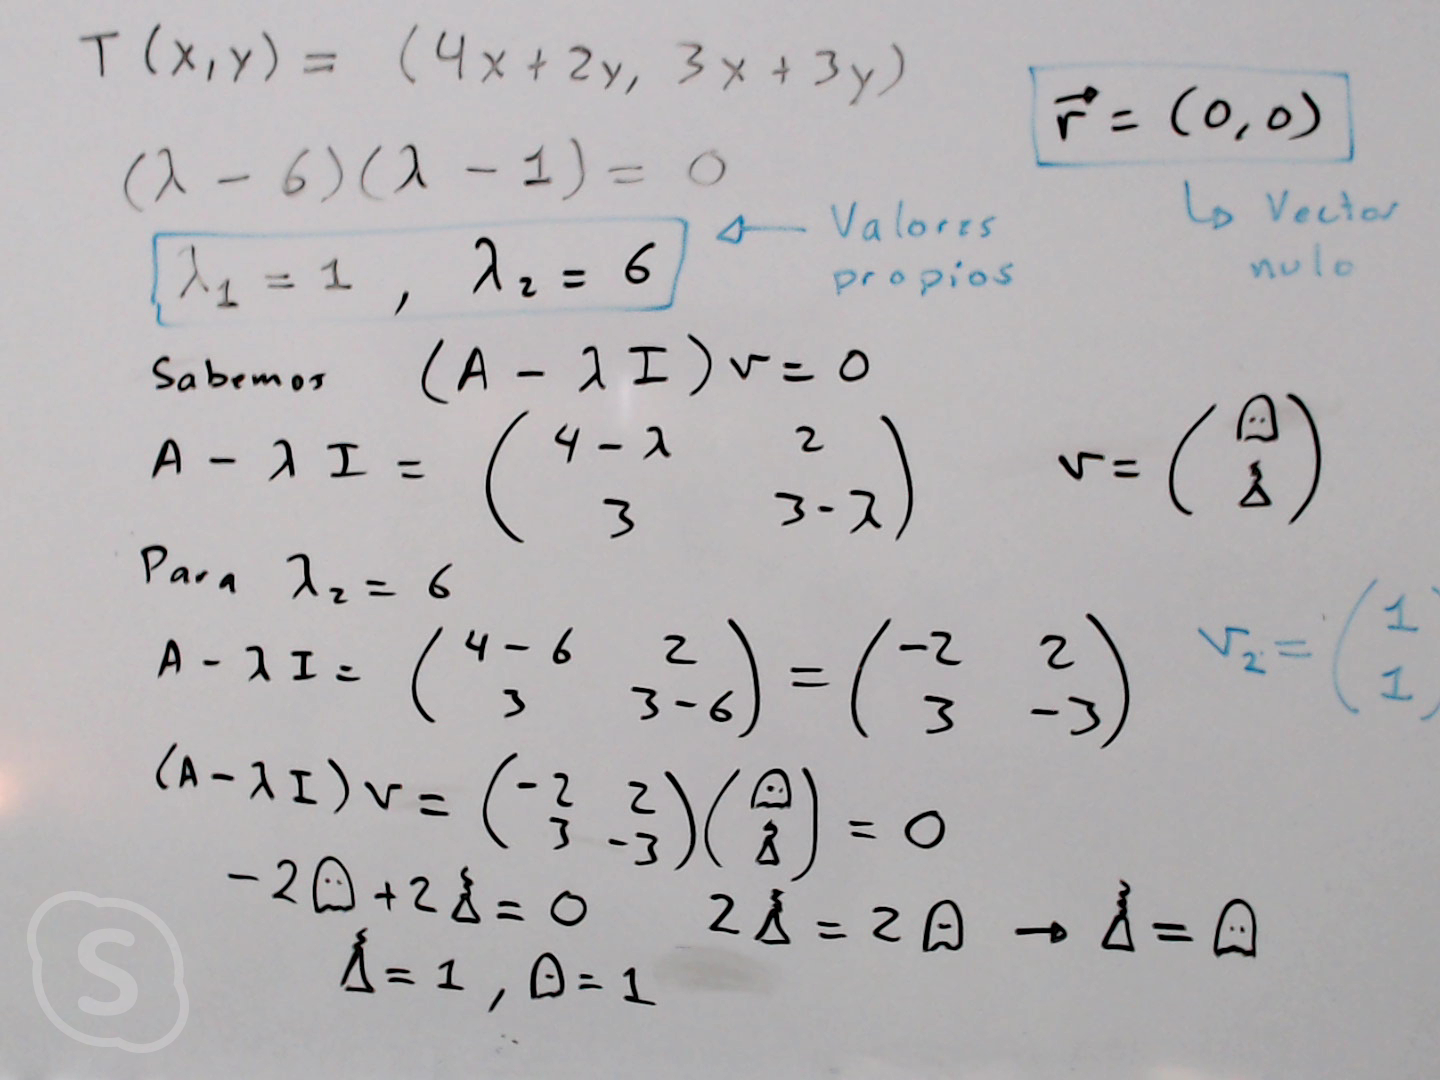 T(x,y) = (4x+2y, 3x+3y)
r⃗ = (0,0)
↳ Vector
nulo
(λ - 6)(λ - 1) = 0
λ₁ = 1 , λ₂ = 6
← Valores
propios
Sabemos (A - λI)v = 0
A - λI = ( 4-λ 2
3 3-λ )
v = ( 👻
🧪 )
Para λ₂ = 6
A - λI = ( 4-6 2
3 3-6 ) = ( -2 2
3 -3 )
v₂ = ( 1
1 )
(A-λI)v = ( -2 2
3 -3 ) ( 👻
🧪 ) = 0
-2👻+2🧪 = 0 2🧪 = 2👻 → 🧪 = 👻
🧪 = 1 , 👻 = 1
S